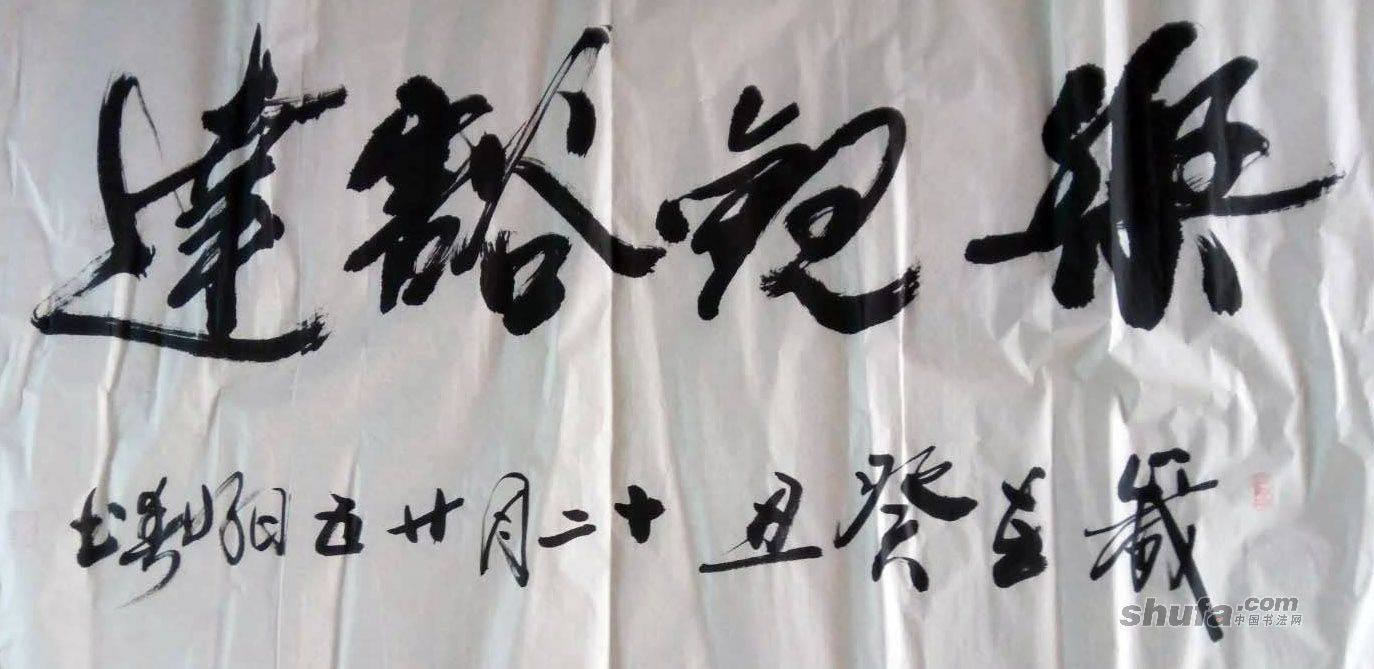 樂觀豁達
歲在癸丑十二月廿五日 書
shufa.com
中国书法网